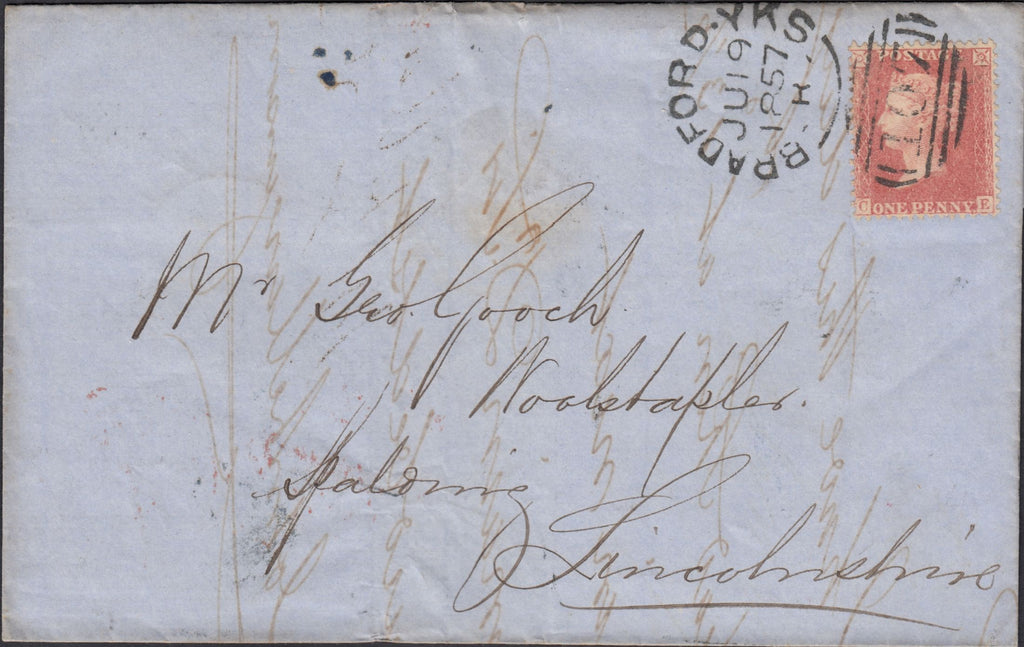 BRADFORD.YKS
JU 19
1857
H
B
107
POSTAGE
C ONE PENNY. E
Mr Geo. Gooch
Woolstapler.
Spalding
Lincolnshire